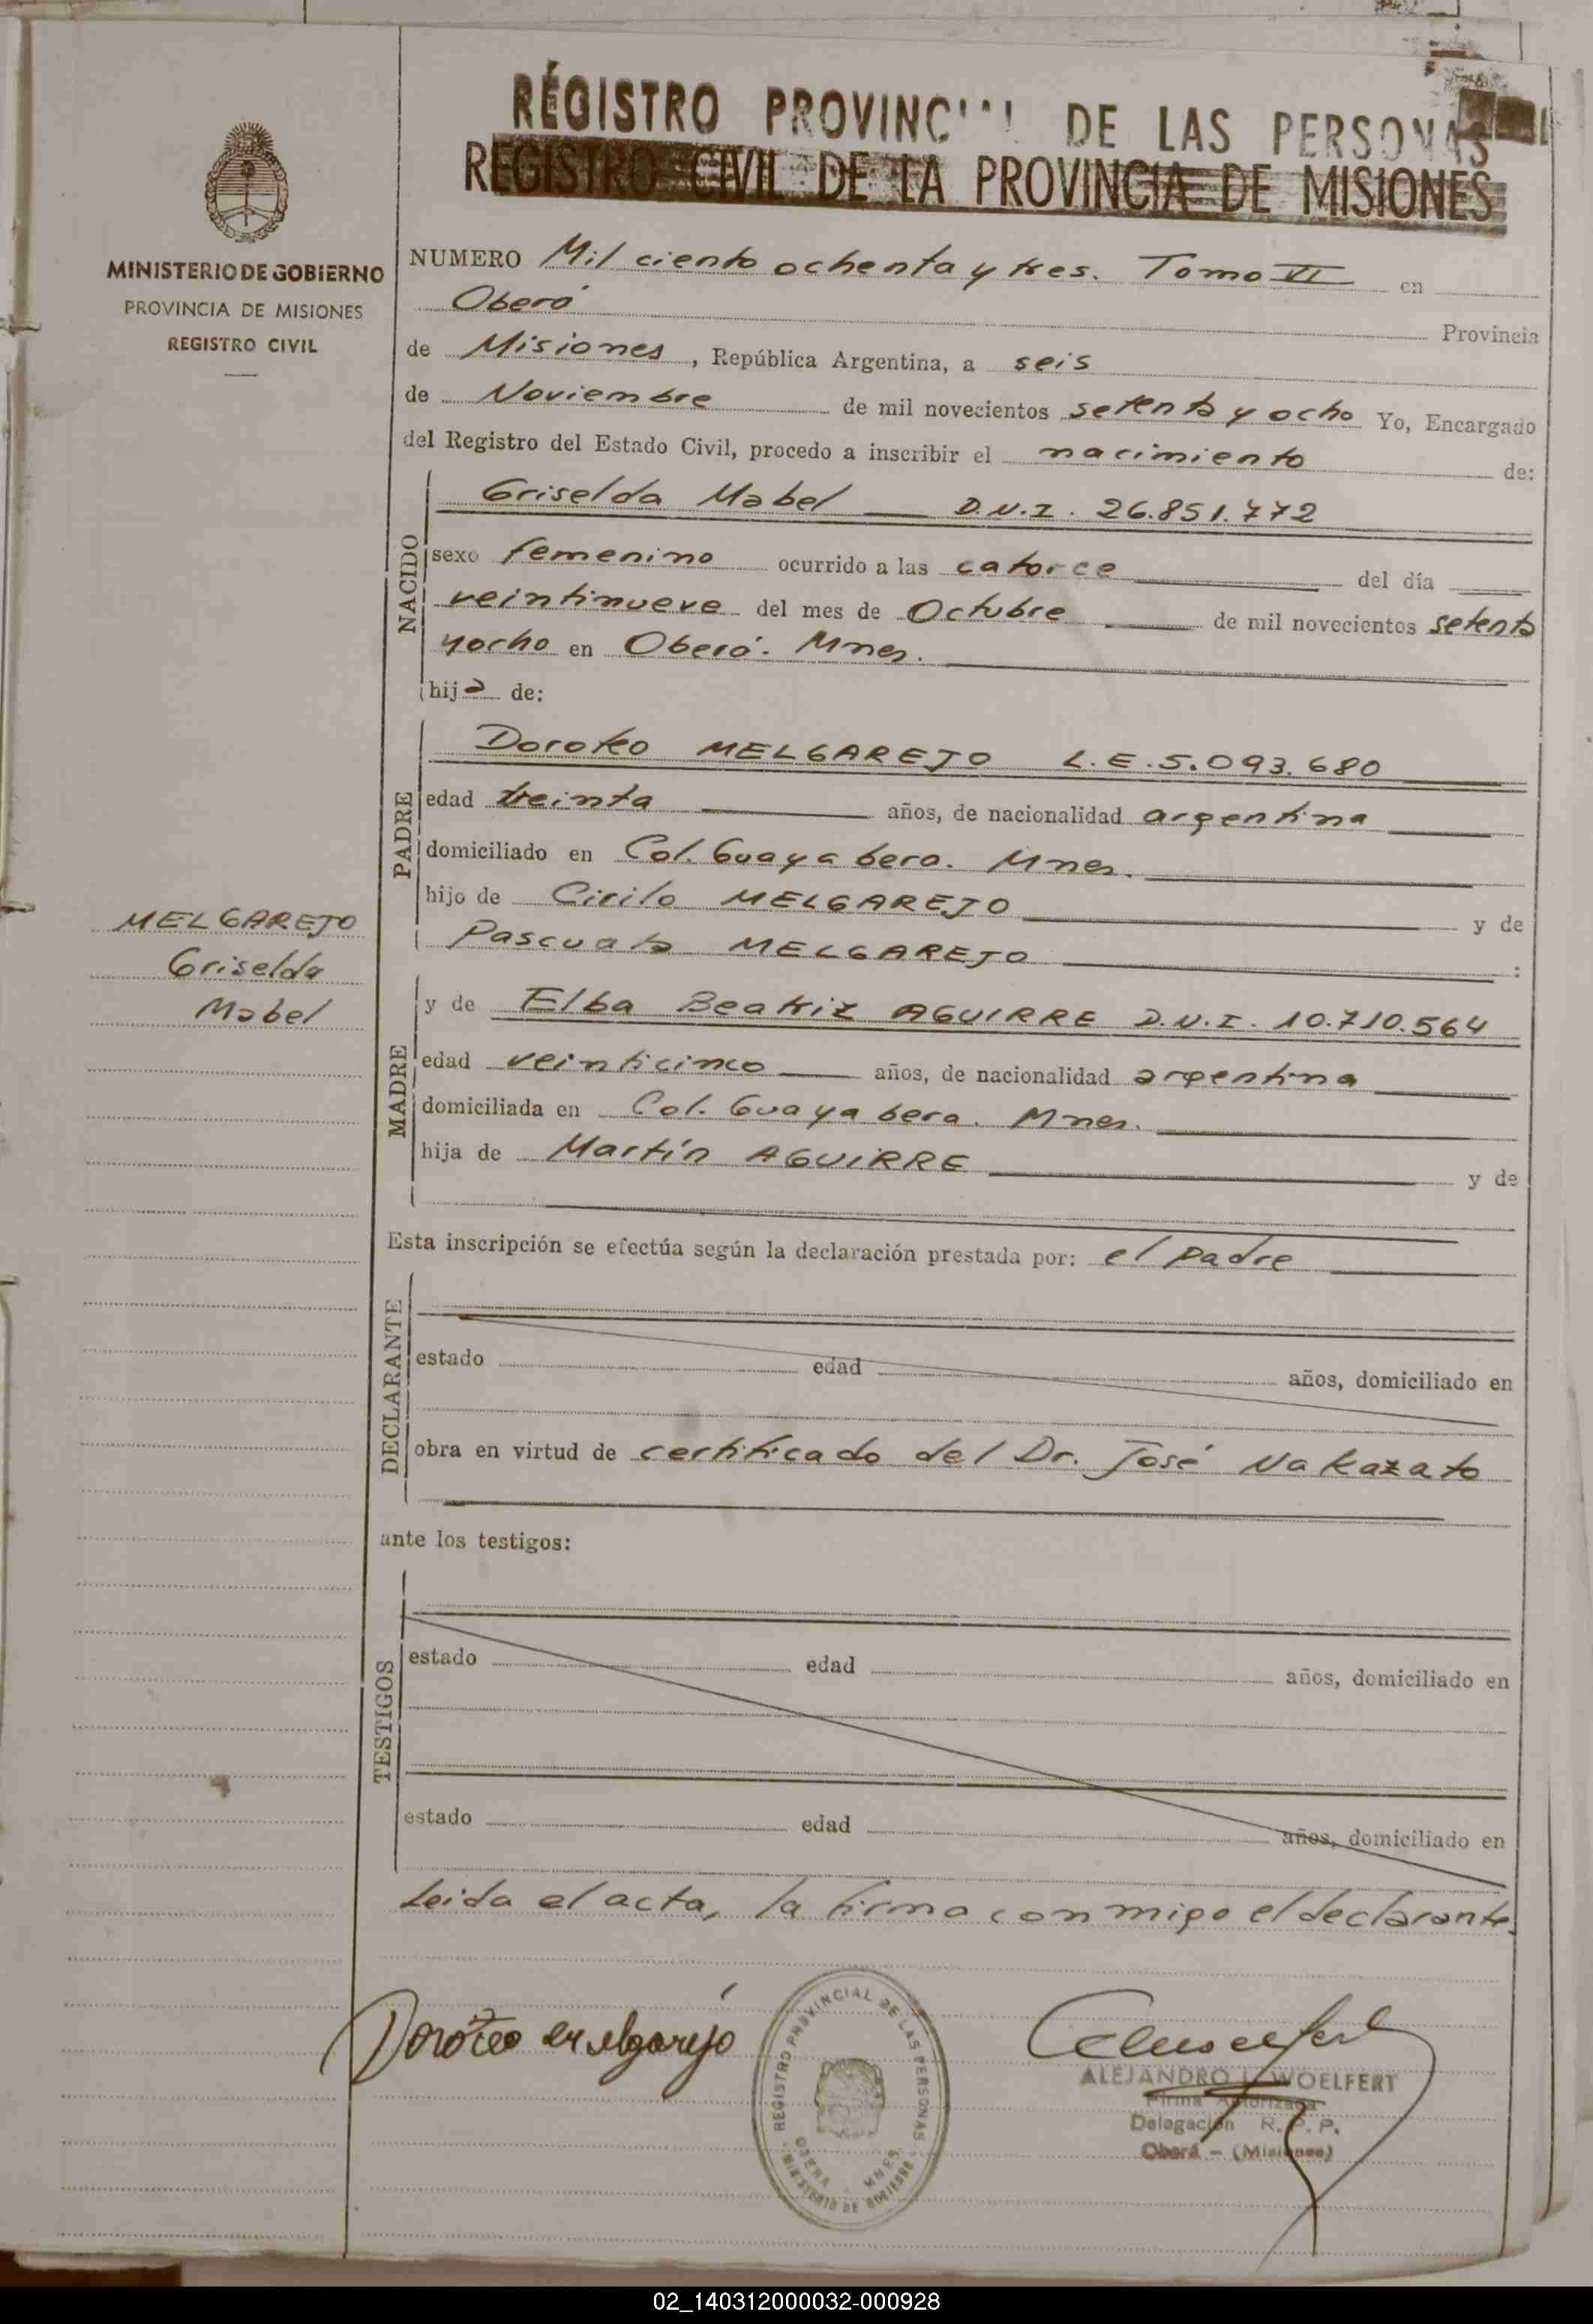 REGISTRO PROVINCIAL DE LAS PERSONAS
REGISTRO CIVIL DE LA PROVINCIA DE MISIONES
MINISTERIO DE GOBIERNO
PROVINCIA DE MISIONES
REGISTRO CIVIL
NUMERO Mil ciento ochenta y tres. Tomo VI en
Oberá Provincia
de Misiones, República Argentina, a seis
de Noviembre de mil novecientos setenta y ocho Yo, Encargado
del Registro del Estado Civil, procedo a inscribir el nacimiento de:
NACIDO
Griselda Mabel — D.N.I. 26.851.772
sexo femenino ocurrido a las catorce del día
veintinueve del mes de Octubre de mil novecientos setenta
yocho en Oberá. Mnes.
hija de:
PADRE
Doroteo MELGAREJO L.E. 5.093.680
edad treinta años, de nacionalidad argentina
domiciliado en Col. Guayabera. Mnes.
hijo de Cirilo MELGAREJO y de
Pascuala MELGAREJO :
MELGAREJO
Griselda
Mabel
MADRE
y de Elba Beatriz AGUIRRE D.N.I. 10.710.564
edad veinticinco años, de nacionalidad argentina
domiciliada en Col. Guayabera. Mnes.
hija de Martín AGUIRRE y de
Esta inscripción se efectúa según la declaración prestada por: el padre
DECLARANTE
estado edad años, domiciliado en
obra en virtud de certificado del Dr. José Nakazato
ante los testigos:
TESTIGOS
estado edad años, domiciliado en
estado edad años, domiciliado en
Leida el acta, la firma conmigo el declarante.
Doroteo Melgarejo
REGISTRO PROVINCIAL DE LAS PERSONAS
OBERA - MNES
MINISTERIO DE GOBIERNO
ALEJANDRO WOELFERT
Firma Autorizada
Delegación R.P.P.
Oberá - (Misiones)
02_140312000032-000928